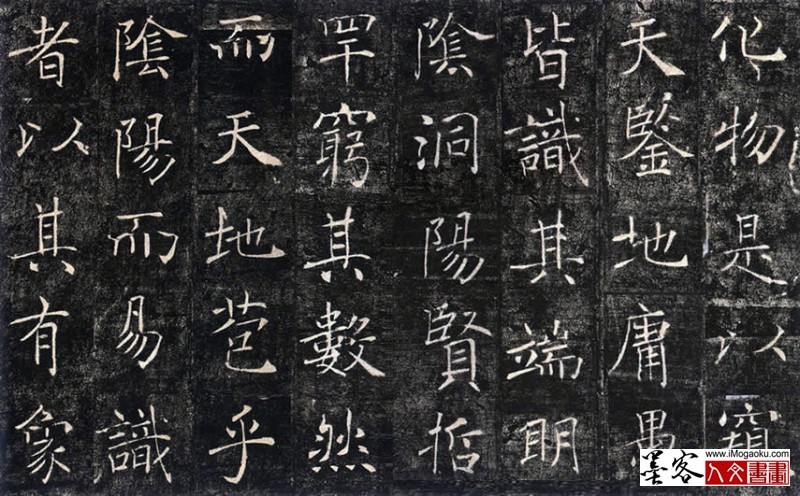 化物是以窺
天鑒地庸愚
皆識其端明
陰洞陽賢哲
罕窮其數然
而天地苞乎
陰陽而易識
者以其有象
墨客
www.iMogaoku.com
人文書畫